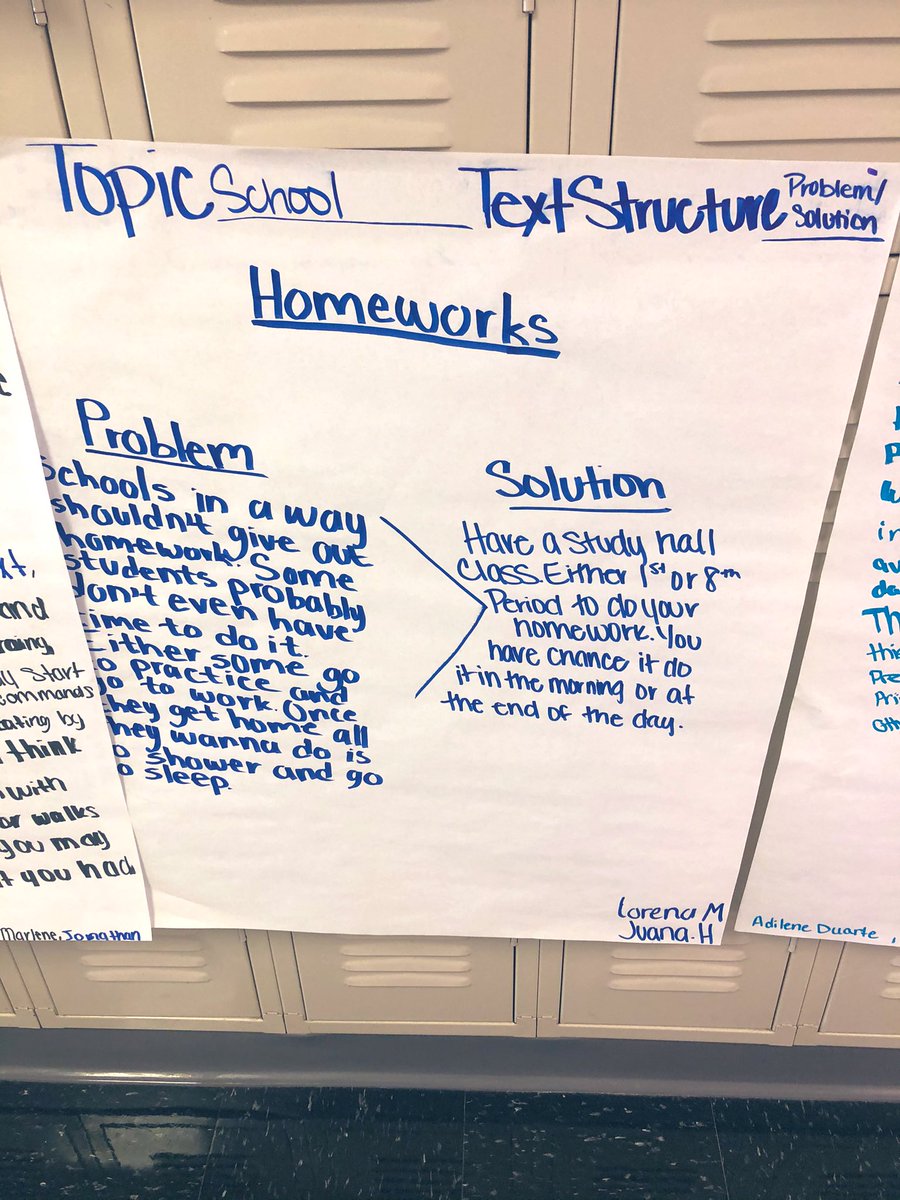 Topic School
Text Structure Problem/
Solution
Homeworks
Problem
Schools in a way
shouldn't give out
homework. Some
students probably
don't even have
time to do it.
Either some go
to practice and
go to work. Once
they get home all
they wanna do is
to shower and go
to sleep.
Solution
Have a study hall
class. Either 1st or 8th
Period to do your
homework. You
have chance it do
it in the morning or at
the end of the day.
Lorena M
Juana. H
and
Start
commands
by
think
with
or walks
you may
you had
Marlene, Jonathan
in
Th
Adilene Duarte,